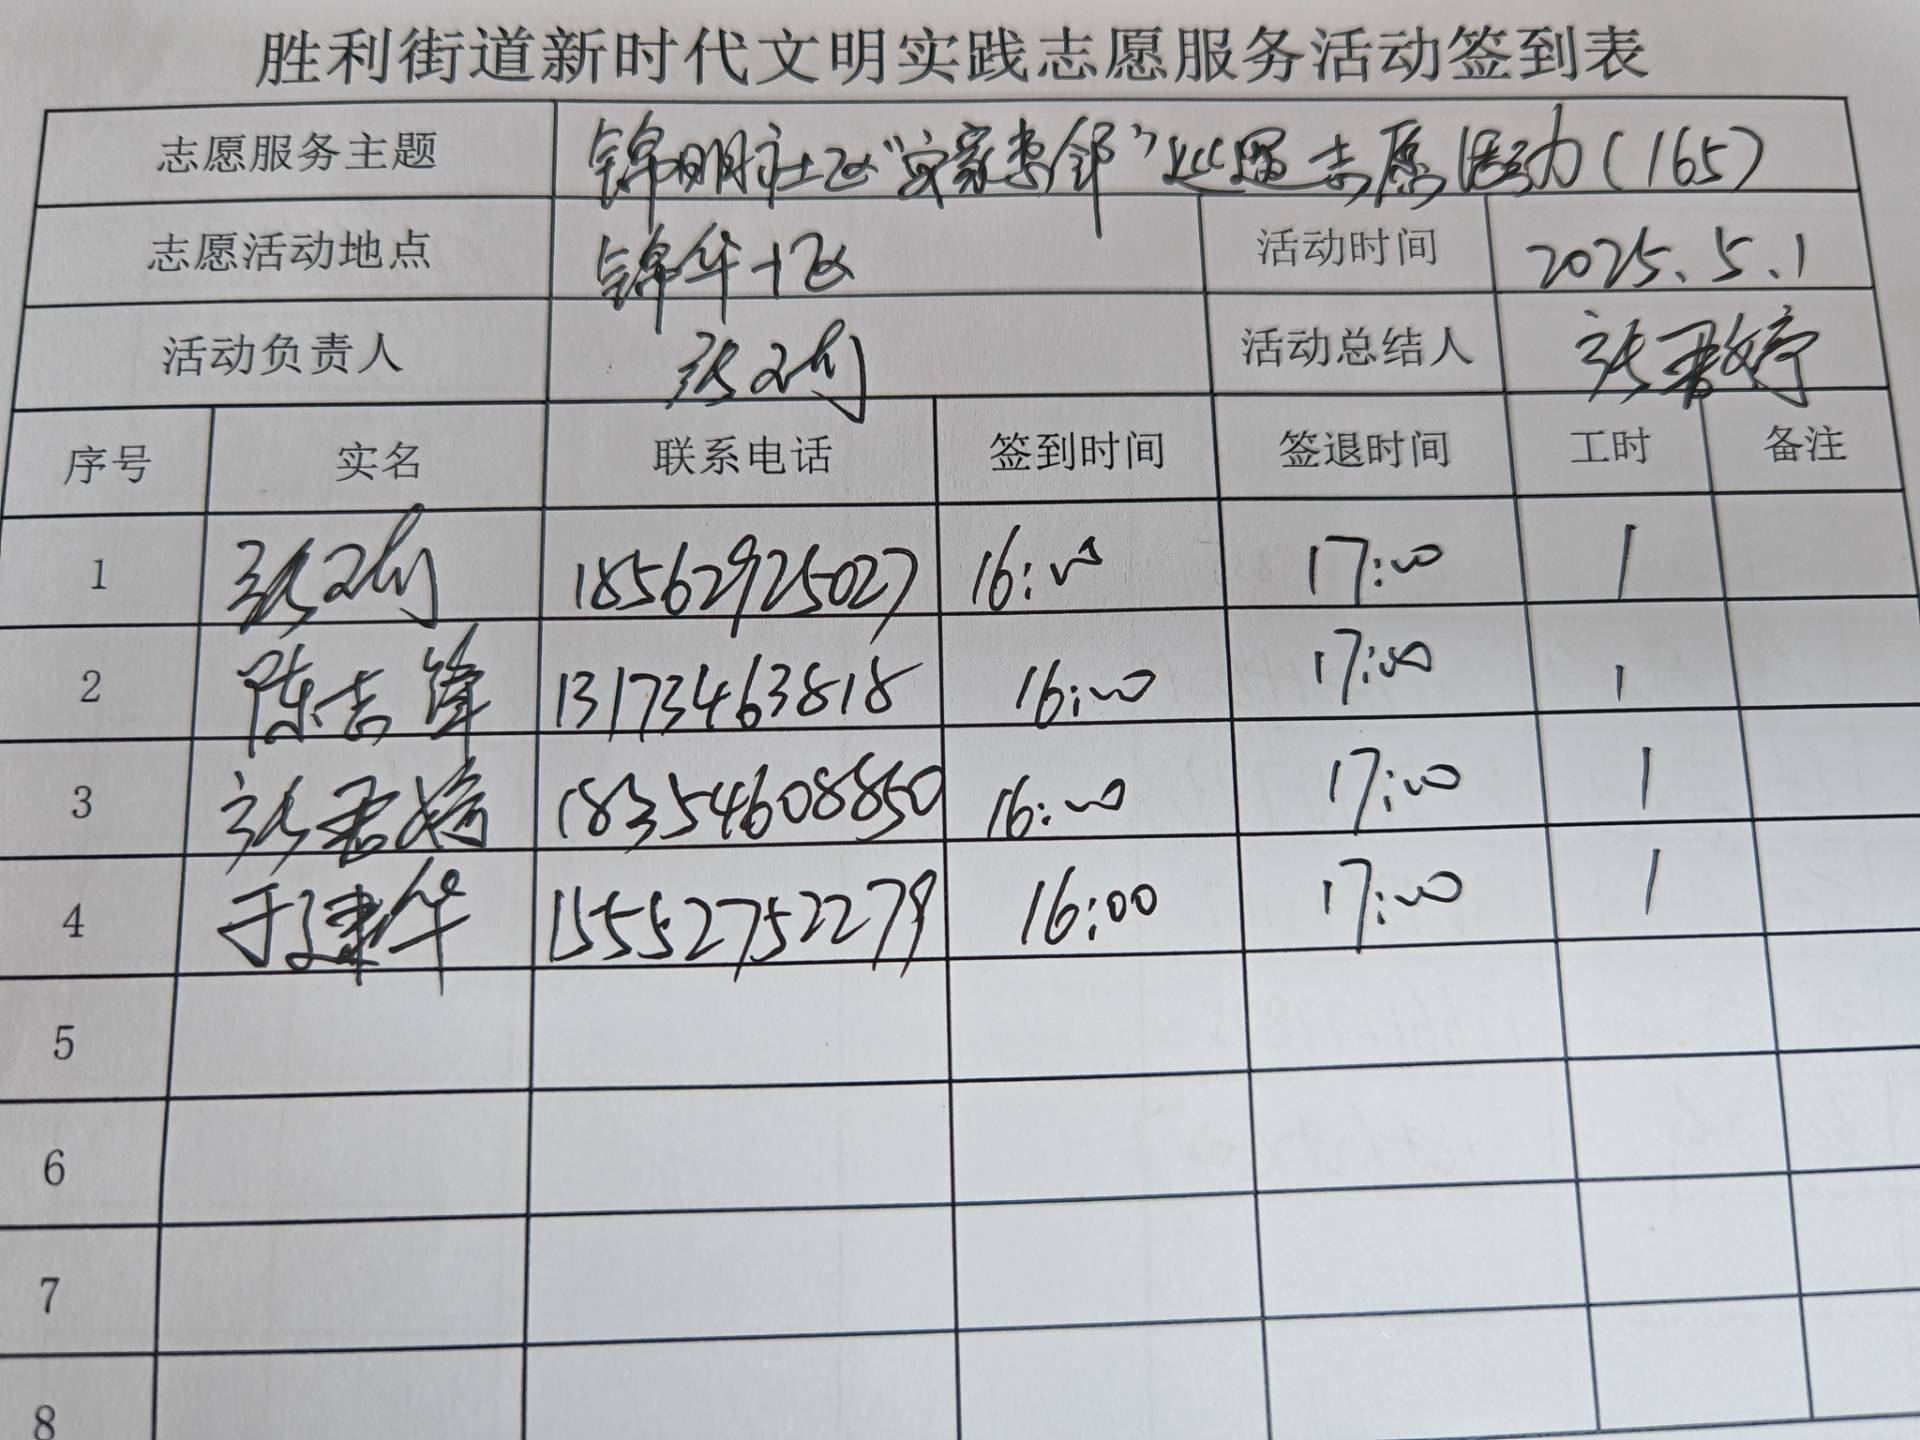 胜利街道新时代文明实践志愿服务活动签到表
志愿服务主题 锦明社区“安家惠邻”巡逻志愿活动(165)
志愿活动地点 锦华十区 活动时间 2025.5.1
活动负责人 张 活动总结人 张君婷
序号 实名 联系电话 签到时间 签退时间 工时 备注
1 张 18562925027 16:00 17:00 1
2 陈志锋 13173463818 16:00 17:00 1
3 张君婷 18354608850 16:00 17:00 1
4 于建华 15552752279 16:00 17:00 1
5
6
7
8